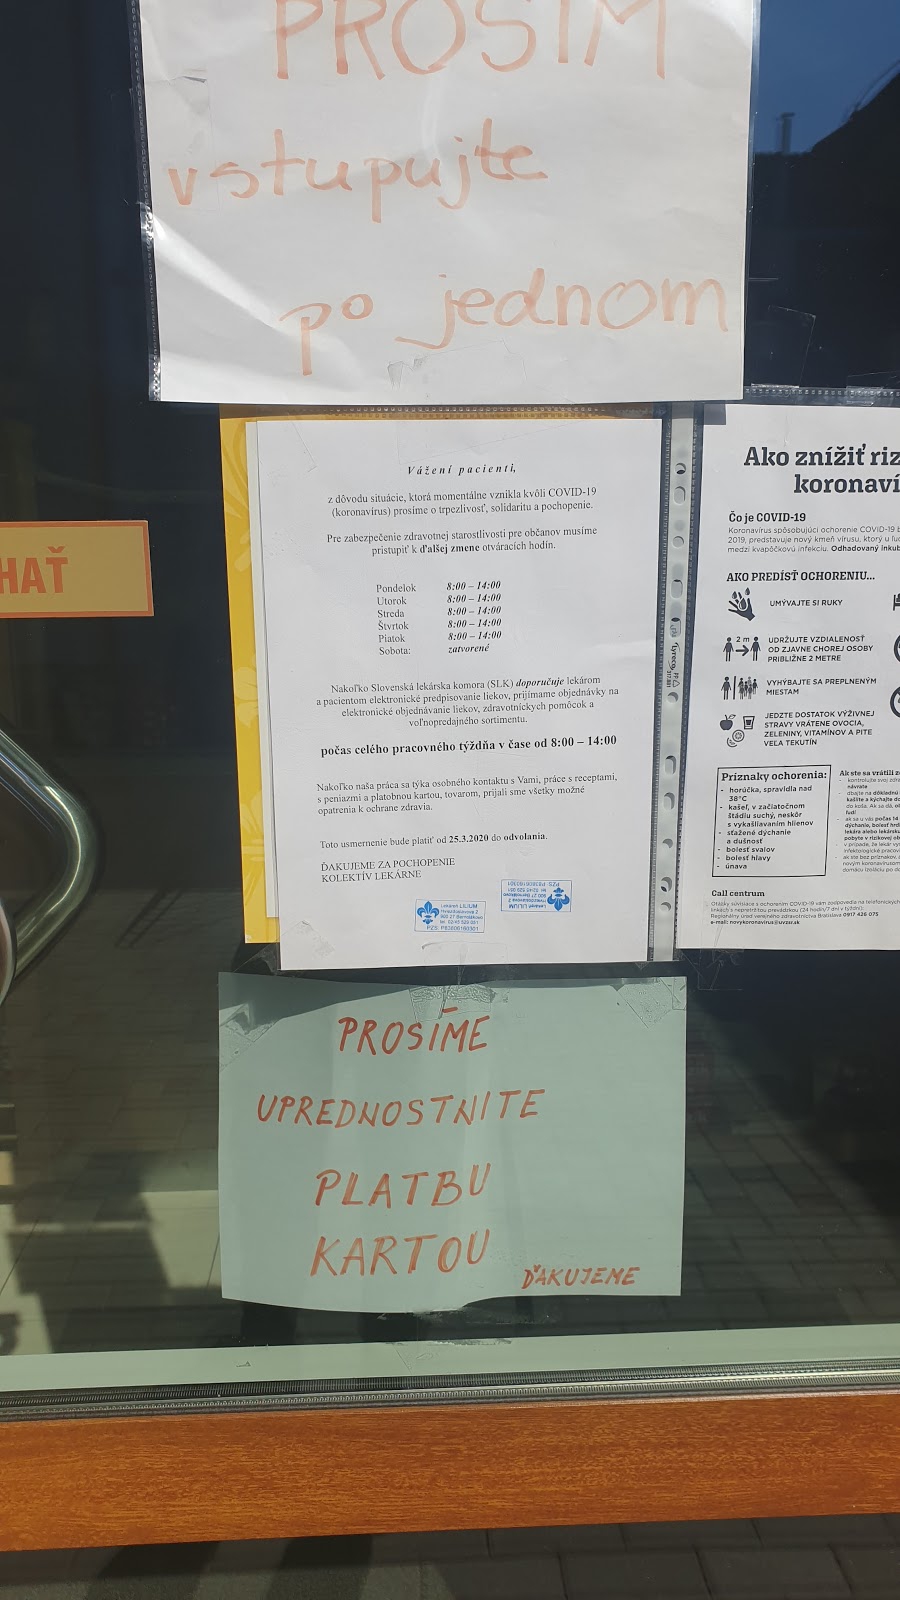 PROSÍM
vstupujte
po jednom
HAŤ
Vážení pacienti,
z dôvodu situácie, ktorá momentálne vznikla kvôli COVID-19
(koronavírus) prosíme o trpezlivosť, solidaritu a pochopenie.
Pre zabezpečenie zdravotnej starostlivosti pre občanov musíme
pristúpiť k ďalšej zmene otváracích hodín.
Pondelok 8:00 – 14:00
Utorok 8:00 – 14:00
Streda 8:00 – 14:00
Štvrtok 8:00 – 14:00
Piatok 8:00 – 14:00
Sobota: zatvorené
Nakoľko Slovenská lekárska komora (SLK) doporučuje lekárom
a pacientom elektronické predpisovanie liekov, prijímame objednávky na
elektronické objednávanie liekov, zdravotníckych pomôcok a
voľnopredajného sortimentu.
počas celého pracovného týždňa v čase od 8:00 – 14:00
Nakoľko naša práca sa týka osobného kontaktu s Vami, práce s receptami,
s peniazmi a platobnou kartou, tovarom, prijali sme všetky možné
opatrenia k ochrane zdravia.
Toto usmernenie bude platiť od 25.3.2020 do odvolania.
ĎAKUJEME ZA POCHOPENIE
KOLEKTÍV LEKÁRNE
Lekáreň LILIUM
Ako znížiť riz
koronaví
Čo je COVID-19
Koronavírus spôsobujúci ochorenie COVID-19 b
2019, predstavuje nový kmeň vírusu, ktorý u ľud
medzi kvapôčkovú infekciu. Odhadovaný inkub
AKO PREDÍSŤ OCHORENIU...
UMÝVAJTE SI RUKY
2 m
UDRŽUJTE VZDIALENOSŤ
OD ZJAVNE CHOREJ OSOBY
PRIBLIŽNE 2 METRE
VYHÝBAJTE SA PREPLNENÝM
MIESTAM
JEDZTE DOSTATOK VÝŽIVNEJ
STRAVY VRÁTENE OVOCIA,
ZELENINY, VITAMÍNOV A PITE
VEĽA TEKUTÍN
Príznaky ochorenia:
- horúčka, spravidla nad
38°C
- kašeľ, v začiatočnom
štádiu suchý, neskôr
s vykašliavaním hlienov
- sťažené dýchanie
a dušnosť
- bolesť svalov
- bolesť hlavy
- únava
Ak ste sa vrátili z
Call centrum
Otázky súvisiace s ochorením COVID-19 vám zodpovedia na telefonických
linkách s nepretržitou prevádzkou (24 hodín/7 dní v týždni):
Regionálny úrad verejného zdravotníctva Bratislava 0917 426 075
e-mail: novykoronavirus@uvzsr.sk
PROSÍME
UPREDNOSTNITE
PLATBU
KARTOU
ĎAKUJEME